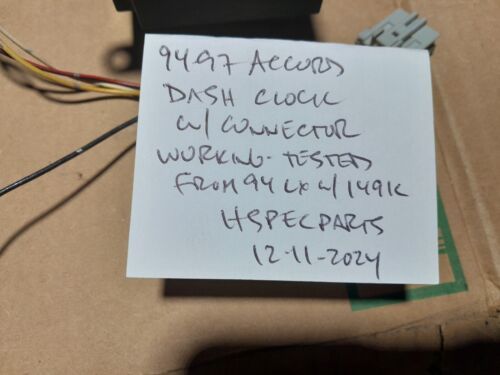 94-97 ACCORD
DASH CLOCK
W/ CONNECTOR
WORKING-TESTED
FROM 94 LX W/ 149K
HSPECPARTS
12-11-2024